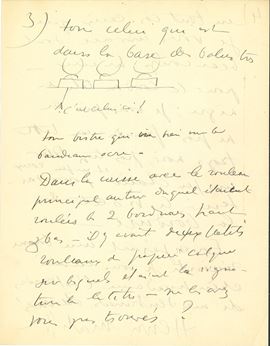 3) ton celui qui est
dans la base des balustres
C'est celui ci!
ton bistre qui va
bandeau ocre.
Dans la caisse avec le rouleau
principal autour duquel étaient
roulées les 2 bordures haut
et bas – il y avait deux petits
rouleaux de papier calque
sur lesquels étaient la signa-
ture la tete – ne les avez
vous pas trouvés ?